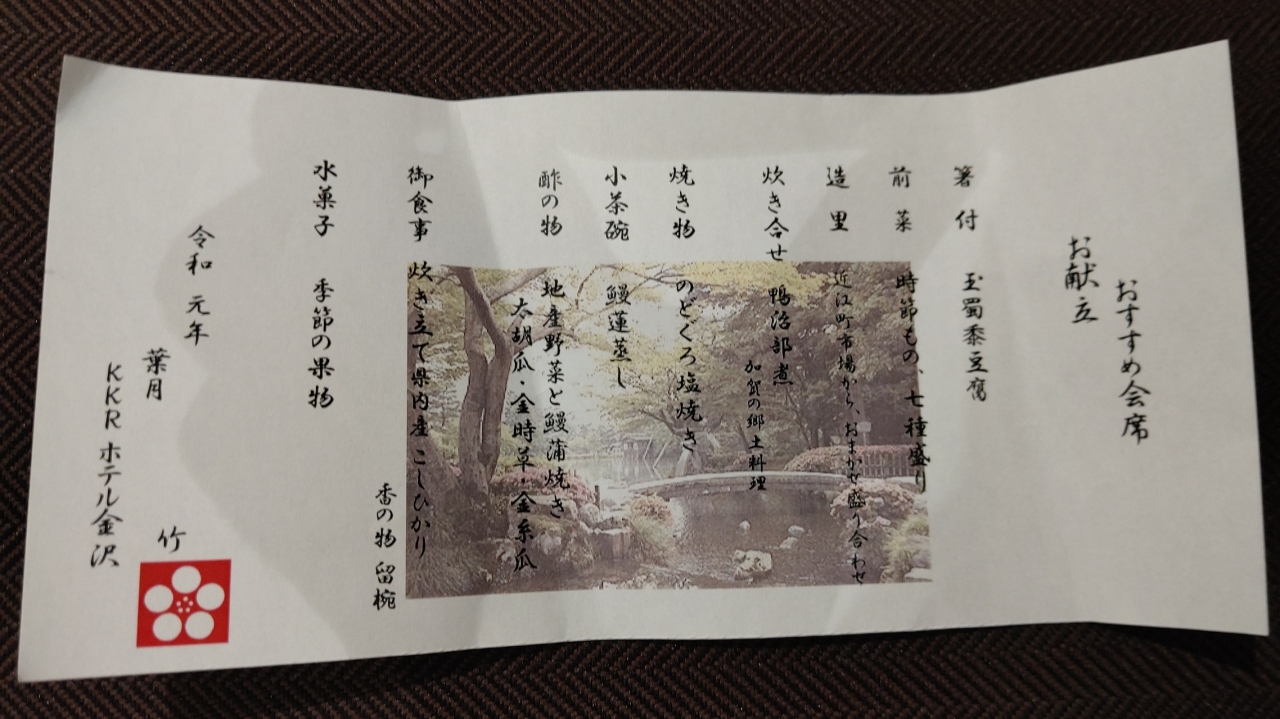 おすすめ会席
お献立
箸付 玉蜀黍豆腐
前菜 時節もの、七種盛り
造里 近江町市場から、おまかせ盛り合わせ
炊き合せ 鴨治部煮
加賀の郷土料理
焼き物 のどくろ塩焼き
小茶碗 鰻蓮蒸し
酢の物 地産野菜と鰻蒲焼き
太胡瓜・金時草・金糸瓜
御食事 炊き立て県内産 こしひかり
香の物 留椀
水菓子 季節の果物
令和 元年
葉月
竹
KKR ホテル金沢